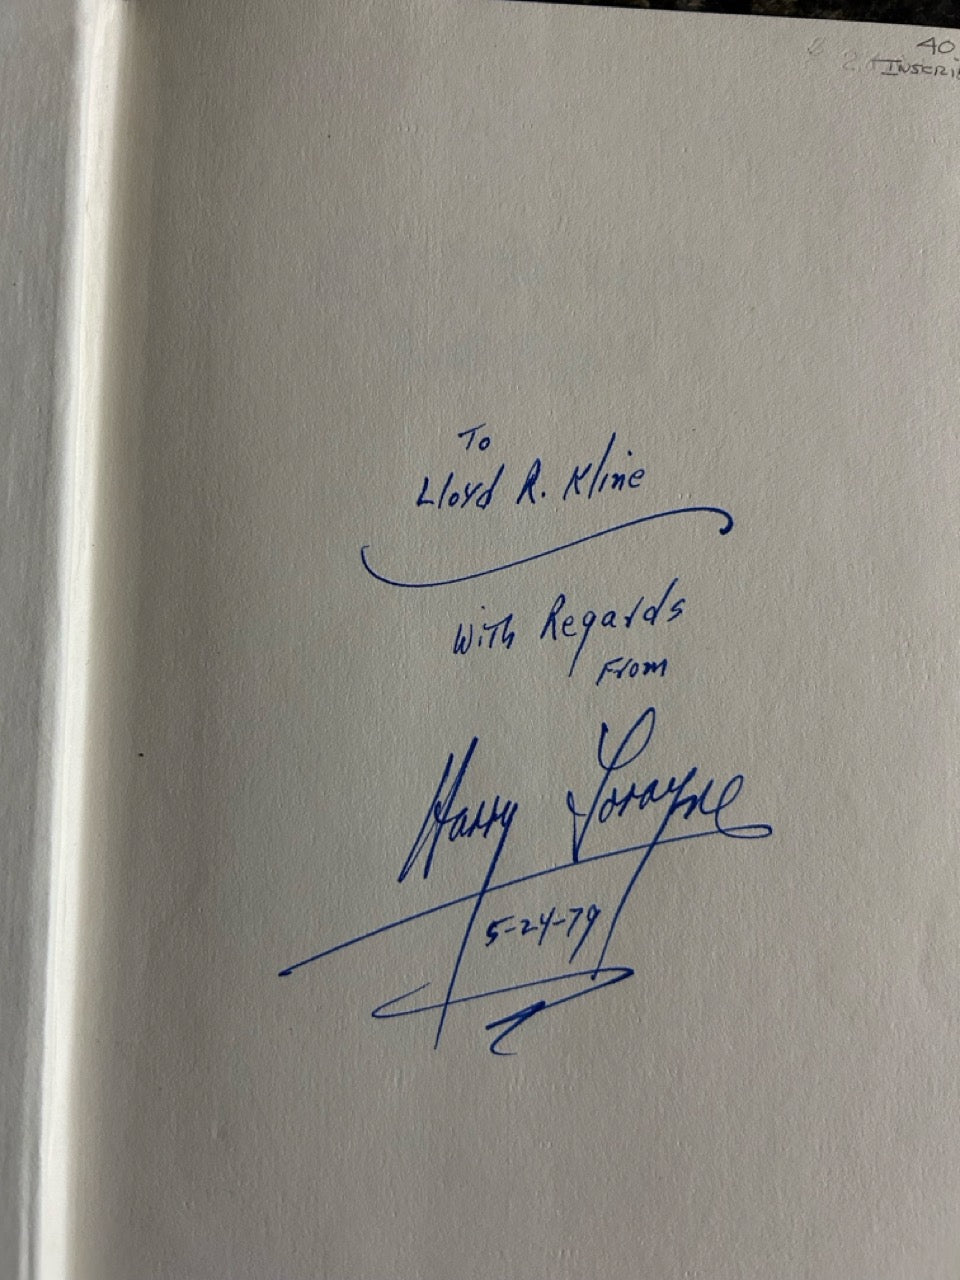 40
INSCRI
To
Lloyd R. Kline
With Regards
From
Harry Lorayne
5-24-79